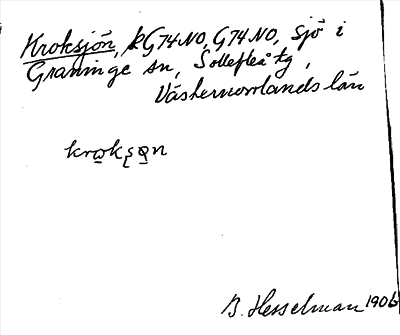 Kroksjön, kG74NO, G74NO, sjö i
Graninge sn, Sollefteå tg,
Västernorrlands län
krokʂon
B. Hesselman 1906